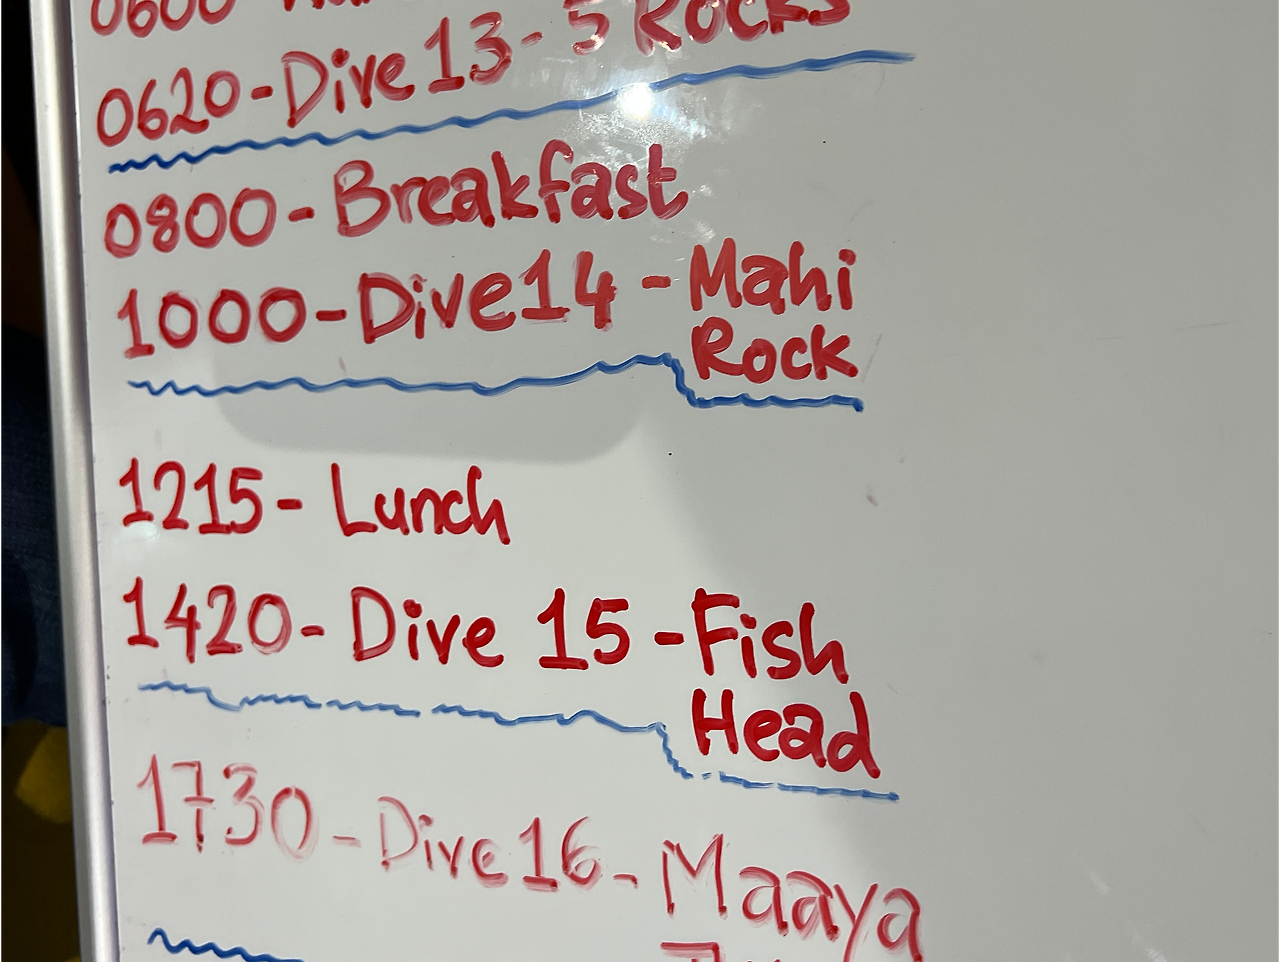 0600
0620-Dive 13- 5 Rocks
0800-Breakfast
1000-Dive14 -Mahi
Rock
1215- Lunch
1420- Dive 15 -Fish
Head
1730-Dive16-Maaya